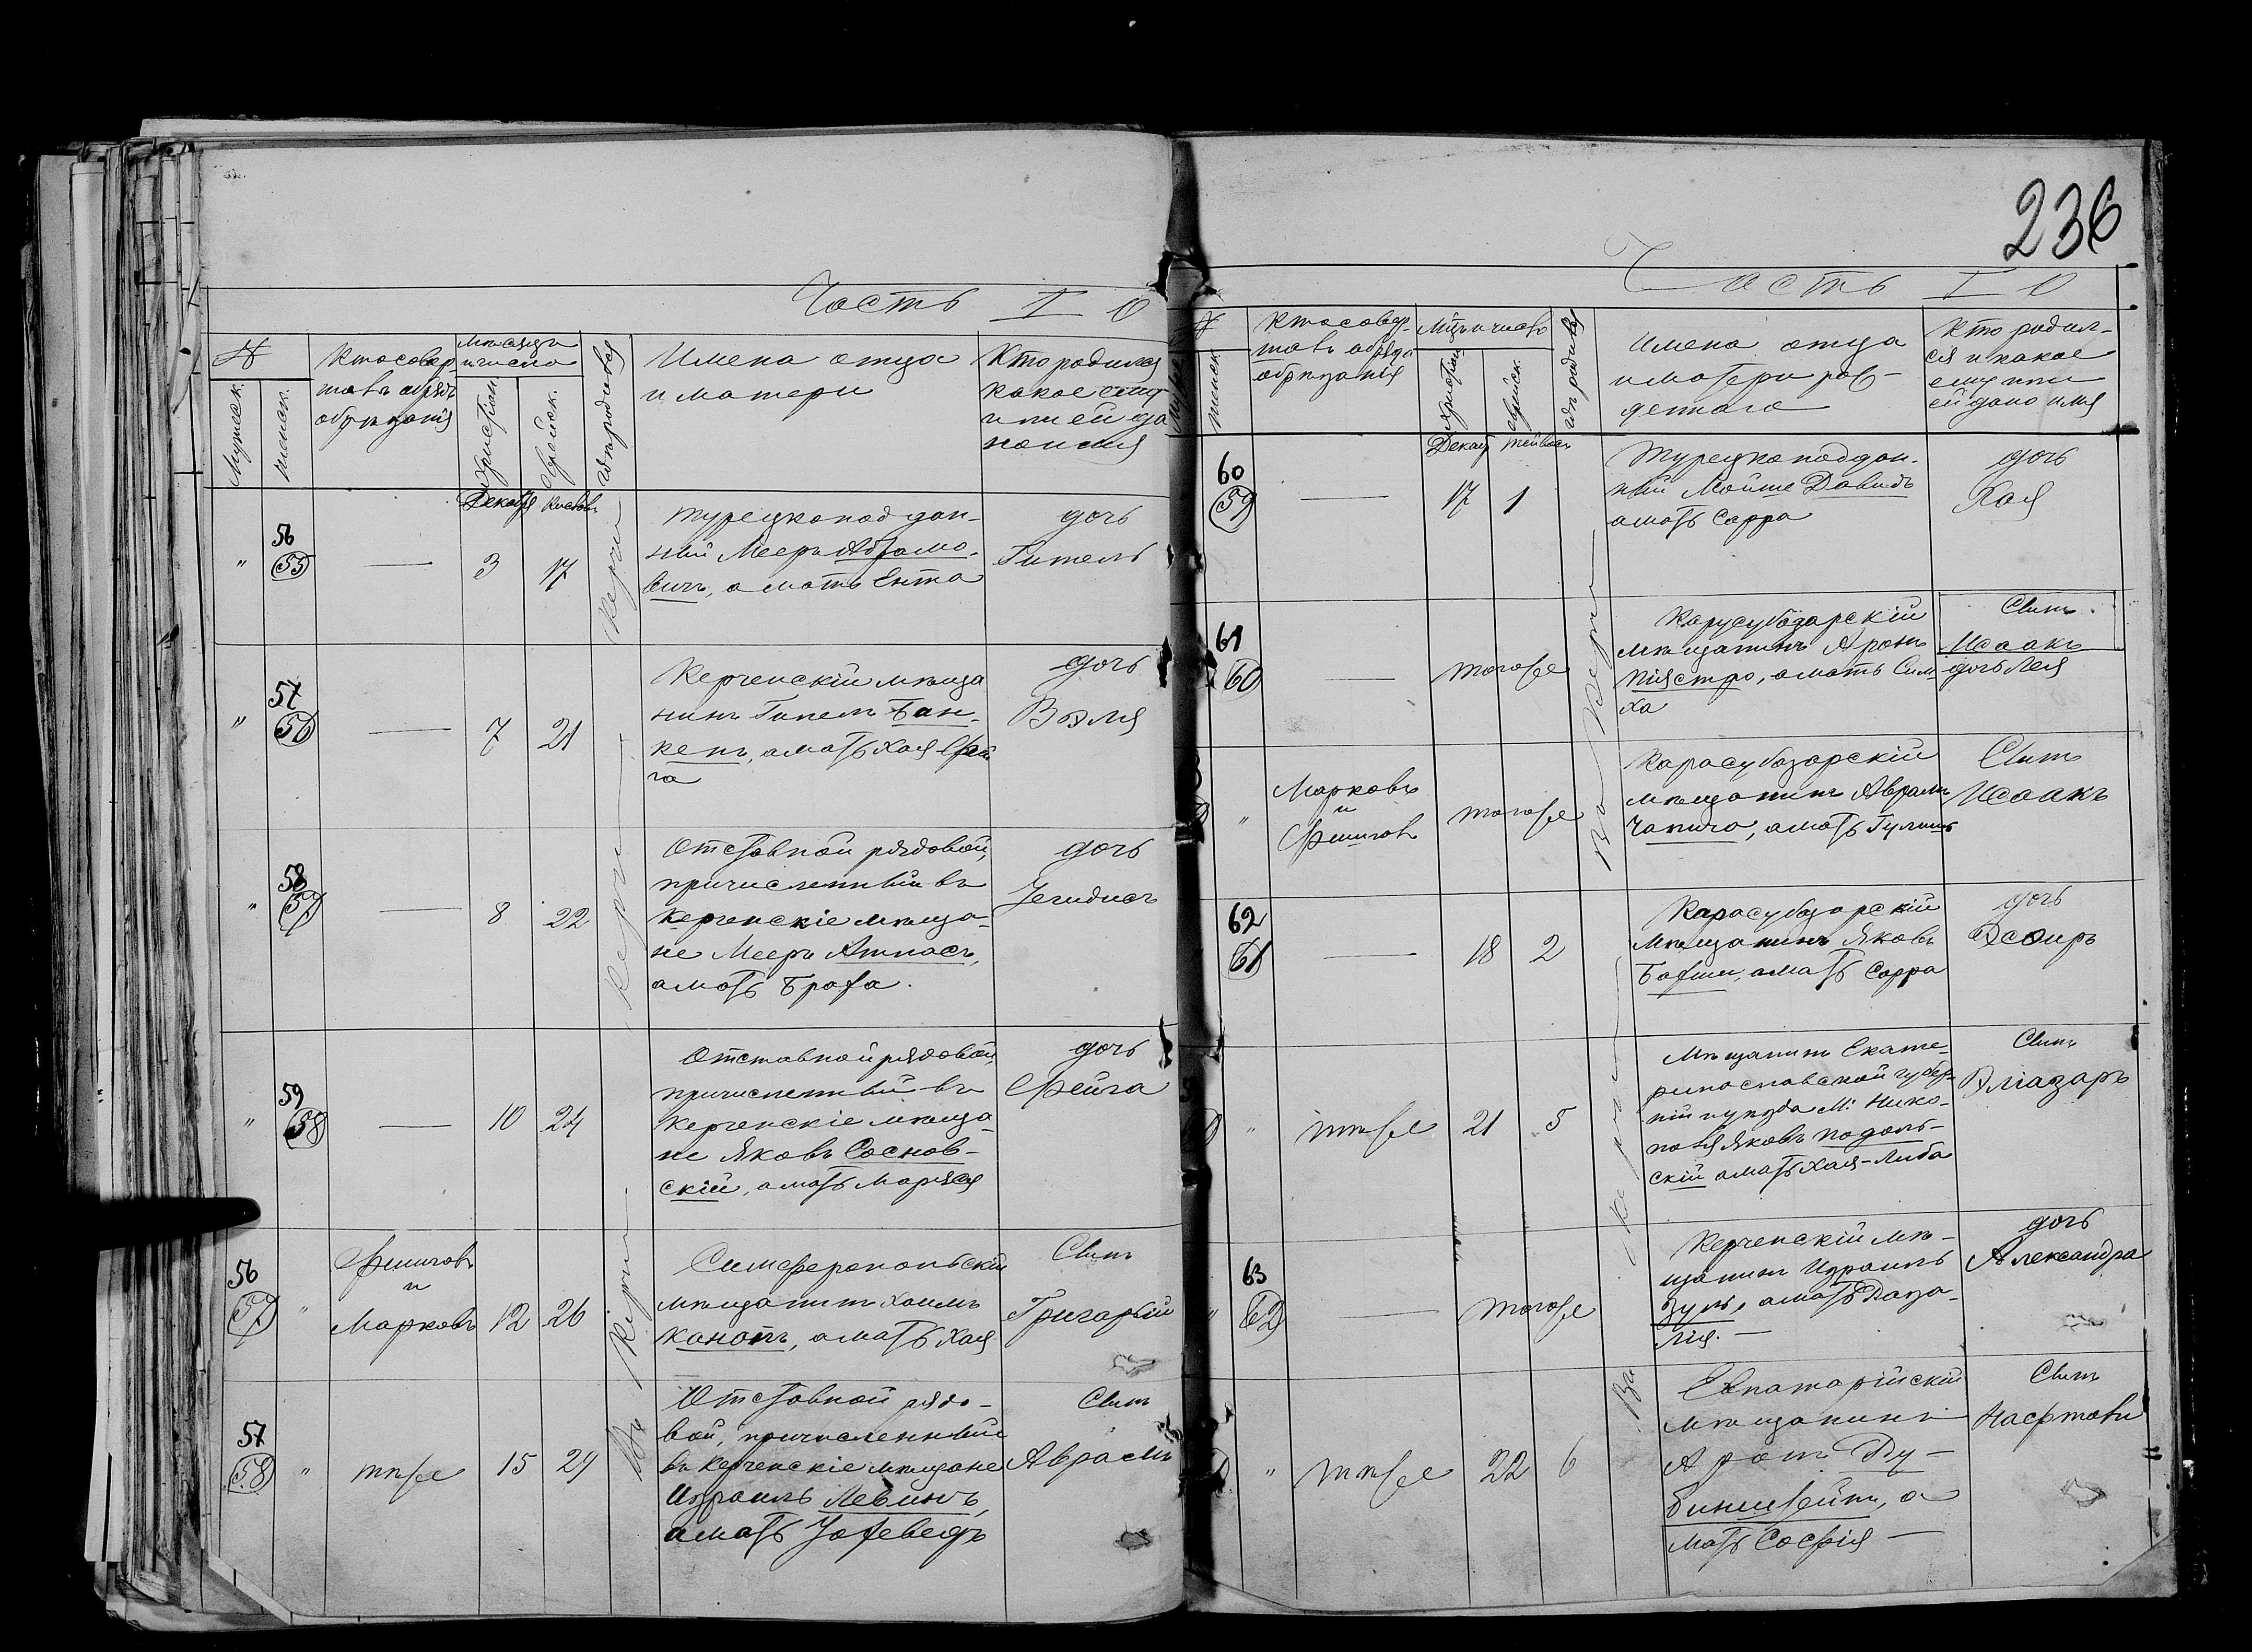 Часть I о
№
Кто совер-
шавъ обрядъ
обрѣзанія
Мѣсяцъ
и число
гдѣ родился
Имена отца
и матери
Кто родился
какое ему
или ей да
но имя
Мужеск.
женск.
Христіан.
еврейск.
Декабря Кислевъ
"
56
55
3
17
Турецко поддан-
ный Мееръ Абрамо-
вичъ, а мать Ента
дочь
Гитель
Керчи
"
57
56
7
21
Керченскій мѣща
нинъ Гилель Бан-
кепъ, а мать Хая Фей
га
дочь
Вэля
"
58
57
8
22
Отставной рядовой,
причисленный въ
Керченскіе мѣща-
не Мееръ Атласъ,
а мать Браха.
дочь
"
59
58
10
24
Отставной рядовой,
причисленный въ
Керченскіе мѣща-
не Яковъ Соснов-
скій, а мать Маряся
дочь
Фейга
56
57
"
Фишговъ
и
Марковъ
12
26
Симферопольскій
мѣщанинъ Хаимъ
Канотъ, а мать Хая
Сынъ
Григорый
57
58
"
тѣже
15
29
Отставной рядо-
вой, причисленный
въ Керченскіе мѣщане
Израиль Левинъ,
а мать Іохеведъ
Сынъ
Аврамъ
Въ Керчи
236
Часть I о
№
женск.
Кто совер-
шавъ обряда
обрѣзанія
Мѣцъ и число
Христіан
еврейск.
гдѣ родился
Имена отца
и матери рож-
деннаго
Кто родил-
ся и какое
ему или
ей дано имя
Декаб Тейвесъ
60
59
17
1
Турецко поддан-
ный Мойше Давидъ
а мать Сарра
дочь
Хая
61
60
тогоже
Карусубазарскій
мѣщанинъ Аронъ
Піястро, а мать Сим-
ха
Сынъ
Исаакъ
дочь Лея
"
Марковъ
и
Фишговъ
тогоже
Карасубазарскій
мѣщанинъ Аврамъ
Чапичо, а мать Гулишъ
Сынъ
Исаакъ
62
61
18
2
Карасубазарскій
мѣщанинъ Яковъ
Бакши, а мать Сарра
дочь
Эсоиръ
"
тѣже
21
5
Мѣщанинъ Екате-
ринославской губер-
ніи и уѣзда М: Нико-
поля Яковъ Подоль-
скій а мать Хая-Либа
Сынъ
Эліазаръ
"
63
62
тогоже
Керченскій мѣ-
щанинъ Израиль
Зуль, а мать Роза-
лія. —
дочь
Александра
"
тѣже
22
6
Евпаторійскій
мѣщанинъ
Аронъ Ду-
биншейнъ, а
мать Софія —
Сынъ
Нафтоли
Въ Керчи